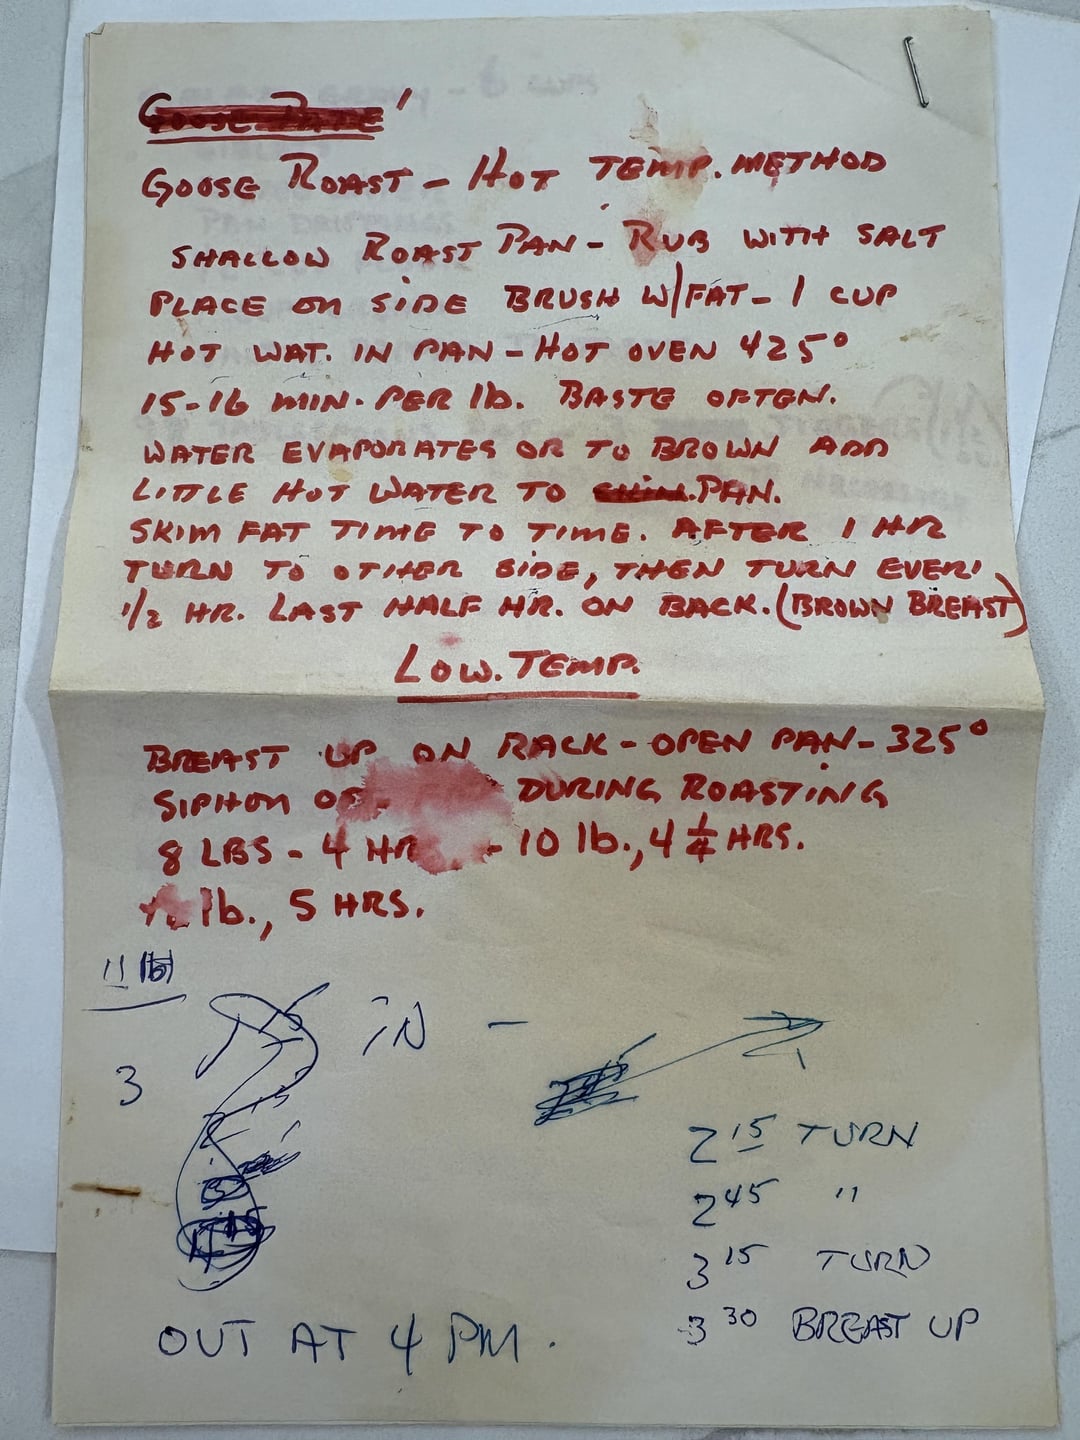 GOOSE ROAST - HOT TEMP. METHOD
SHALLOW ROAST PAN - RUB WITH SALT
PLACE ON SIDE BRUSH W/FAT - 1 CUP
HOT WAT. IN PAN - HOT OVEN 425°
15-16 MIN. PER lb. BASTE OFTEN.
WATER EVAPORATES OR TO BROWN ADD
LITTLE HOT WATER TO PAN.
SKIM FAT TIME TO TIME. AFTER 1 HR
TURN TO OTHER SIDE, THEN TURN EVERY
1/2 HR. LAST HALF HR. ON BACK. (BROWN BREAST)
LOW. TEMP.
BREAST UP ON RACK - OPEN PAN - 325°
SIPHON DURING ROASTING
8 LBS - 4 HR - 10 lb., 4 1/4 HRS.
lb., 5 HRS.
11 lb
IN -
3
2 15 TURN
2 45 "
3 15 TURN
3 30 BREAST UP
OUT AT 4 PM.